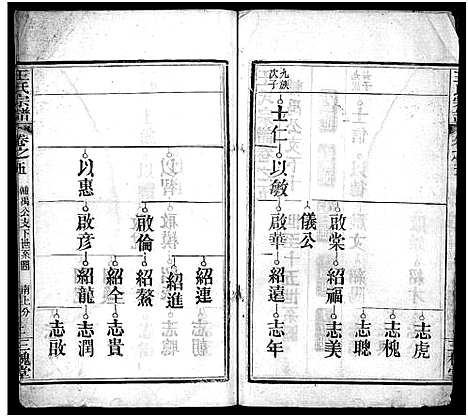 九族
次子
士仁
以敏
儀公
啟棠
啟華
紹福
紹遠
志虎
志槐
志聰
志美
志年
王氏宗譜
卷之五
輔禹公支下世系圖
以惠
啟倫
啟彥
紹運
紹進
紹鰲
紹全
紹龍
志貴
志潤
志敢
三槐堂